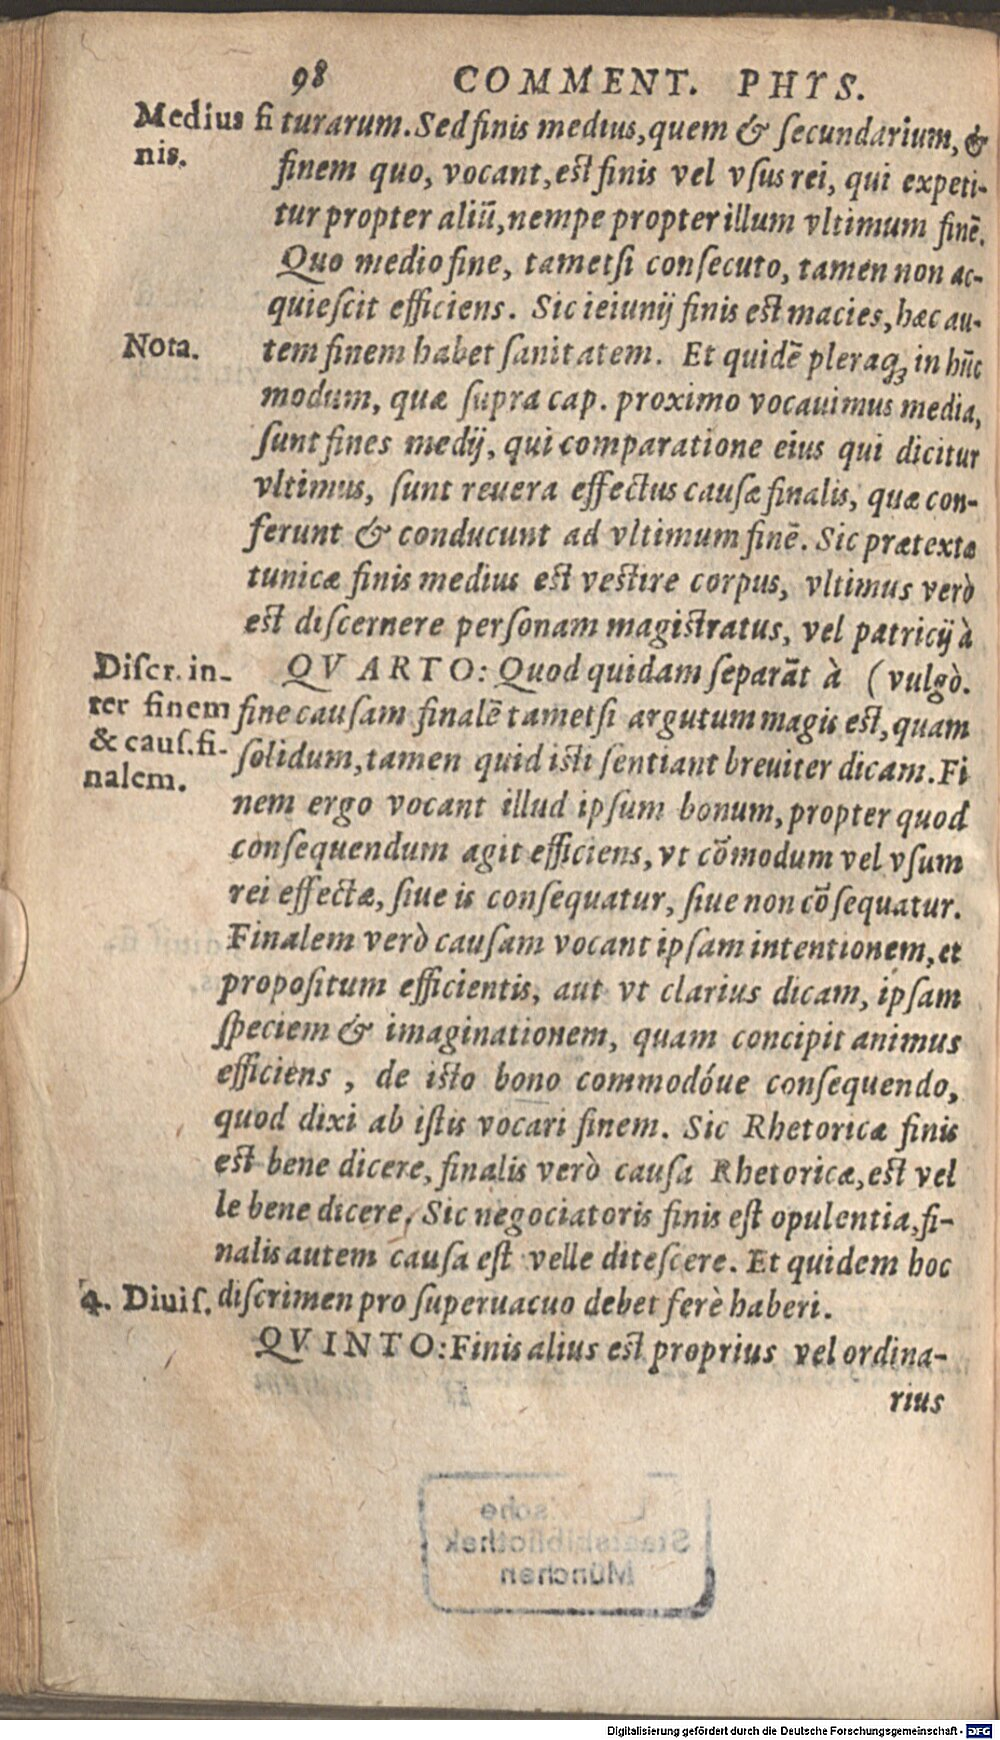 98 COMMENT. PHYS.
Medius fi
nis.
turarum. Sed finis medius, quem & secundarium, &
finem quo, vocant, est finis vel vsus rei, qui expeti-
tur propter aliũ, nempe propter illum vltimum finẽ.
Quo medio fine, tametsi consecuto, tamen non ac-
quiescit efficiens. Sic ieiunij finis est macies, hæc au-
Nota.
tem finem habet sanitatem. Et quidẽ pleraqꝫ in hũc
modum, quæ supra cap. proximo vocauimus media,
sunt fines medij, qui comparatione eius qui dicitur
vltimus, sunt reuera effectus causæ finalis, quæ con-
ferunt & conducunt ad vltimum finẽ. Sic prætextæ
tunicæ finis medius est vestire corpus, vltimus verò
est discernere personam magistratus, vel patricij à
Discr. in-
ter finem
& caus. fi-
nalem.
QVARTO: Quod quidam separãt à (vulgò.
fine causam finalẽ tametsi argutum magis est, quam
solidum, tamen quid isti sentiant breuiter dicam. Fi
nem ergo vocant illud ipsum bonum, propter quod
consequendum agit efficiens, vt cõmodum vel vsum
rei effectæ, siue is consequatur, siue non cõsequatur.
Finalem verò causam vocant ipsam intentionem, et
propositum efficientis, aut vt clarius dicam, ipsam
speciem & imaginationem, quam concipit animus
efficiens, de isto bono commodóue consequendo,
quod dixi ab istis vocari finem. Sic Rhetoricæ finis
est bene dicere, finalis verò causa Rhetoricæ, est vel
le bene dicere, Sic negociatoris finis est opulentia, fi-
nalis autem causa est velle ditescere. Et quidem hoc
4. Diuis.
discrimen pro superuacuo debet ferè haberi.
QVINTO: Finis alius est proprius vel ordina-
rius
Staatsbibliothek
München
Digitalisierung gefördert durch die Deutsche Forschungsgemeinschaft - DFG